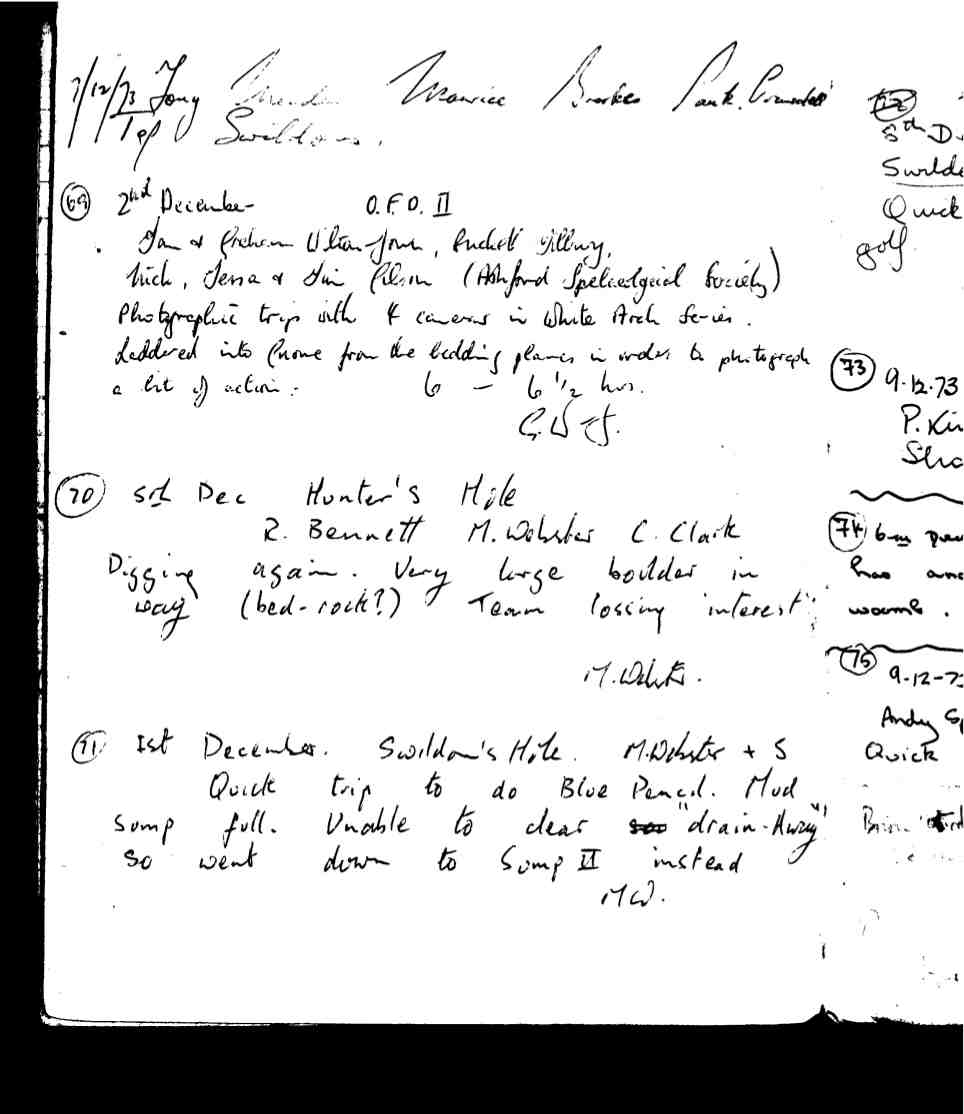 7/12/73 Tony Maurice Brookes Paul
Swildons.
69 2nd December O.F.D. II
& Graham Wilton-Jones, Buckett Tilbury,
Mick, & Jim (Ashford Speleological Society)
Photographic trip with 4 cameras in White Arch Series.
Laddered into from the bedding planes in order to photograph
a bit of action. 6 - 6 1/2 hrs.
G.W-J.
70 3rd Dec Hunter's Hole
R. Bennett M. Webster C. Clark
Digging again. Very large boulder in
way (bed-rock?) Team lossing interest
M. Webster.
71 1st December. Swildon's Hole. M. Webster + S
Quick trip to do Blue Pencil. Mud
sump full. Unable to clear "drain-Away"
so went down to Sump II instead
MW.
8th D
Swild
Quick
golf
73 9.12.73
P. Kin
74
has
warmb.
75 9-12-7
Andy Sp
Quick